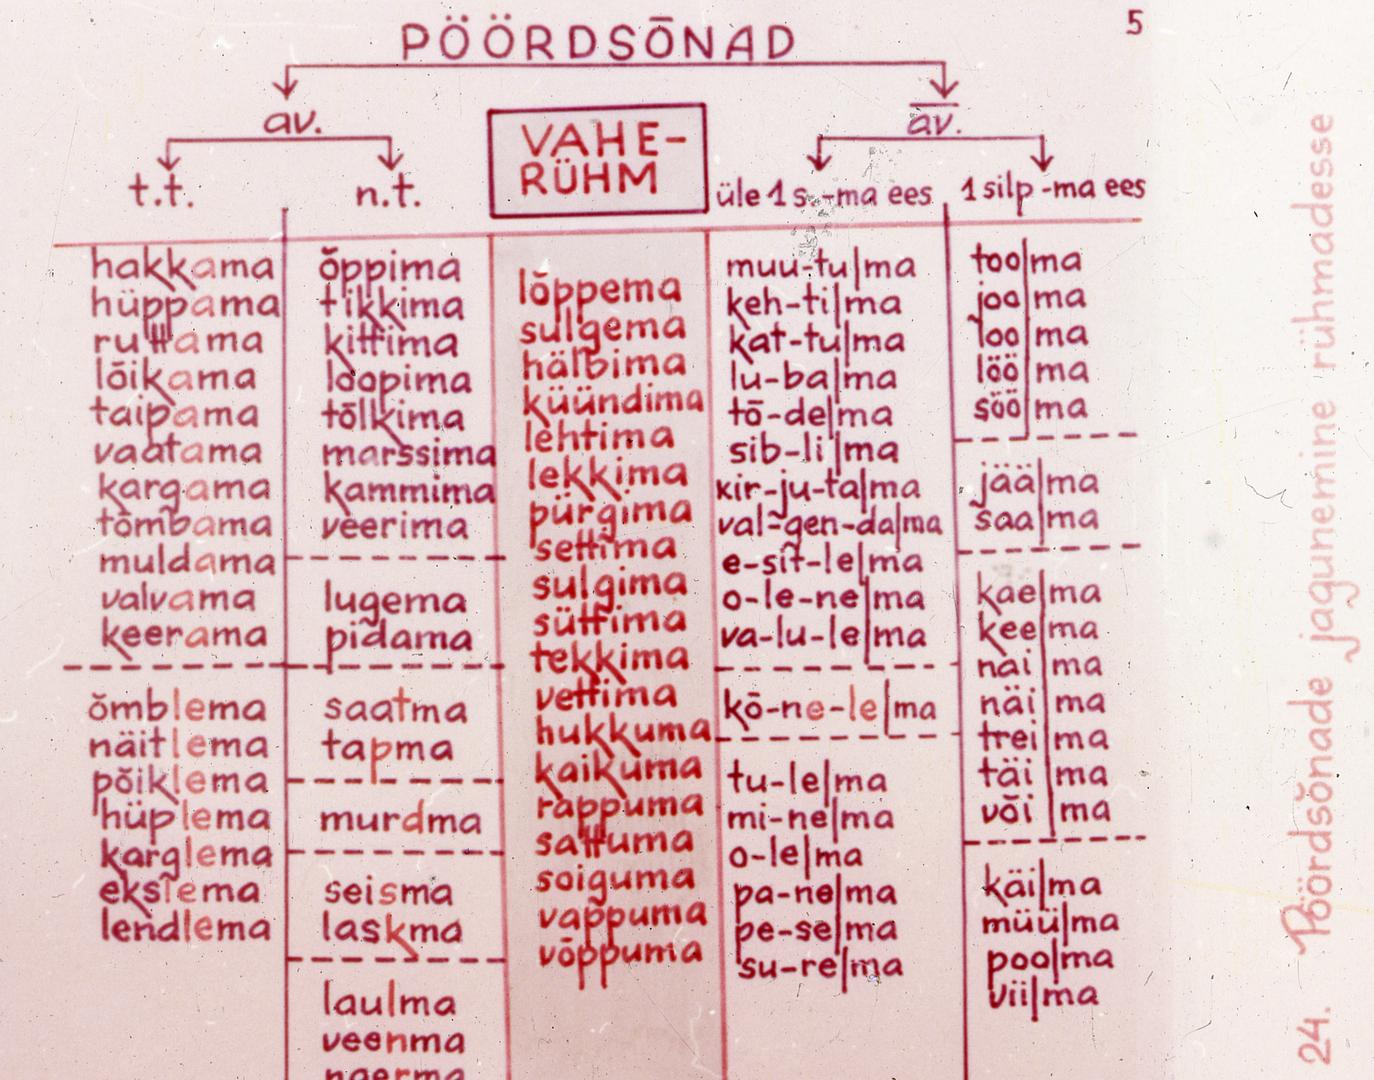 5
PÖÖRDSÕNAD
av.
av.
t.t.
n.t.
VAHE-
RÜHM
üle 1 s. -ma ees
1 silp -ma ees
hakkama
hüppama
ruttama
lõikama
taipama
vaatama
kargama
tõmbama
muldama
valvama
keerama
õmblema
näitlema
põiklema
hüplema
karglema
ekslema
lendlema
õppima
tikkima
kittima
loopima
tõlkima
marssima
kammima
veerima
lugema
pidama
saatma
tapma
murdma
seisma
laskma
laulma
veenma
naerma
lõppema
sulgema
hälbima
küündima
lehtima
lekkima
pürgima
settima
sulgima
süttima
tekkima
vettima
hukkuma
kaikuma
rappuma
sattuma
soiguma
vappuma
võppuma
muu-tu|ma
keh-ti|ma
kat-tu|ma
lu-ba|ma
tõ-de|ma
sib-li|ma
kir-ju-ta|ma
val-gen-da|ma
e-sit-le|ma
o-le-ne|ma
va-lu-le|ma
kõ-ne-le|ma
tu-le|ma
mi-ne|ma
o-le|ma
pa-ne|ma
pe-se|ma
su-re|ma
too|ma
joo|ma
loo|ma
löö|ma
söö|ma
jää|ma
saa|ma
kae|ma
kee|ma
nai|ma
näi|ma
trei|ma
täi|ma
või|ma
käi|ma
müü|ma
poo|ma
vii|ma
24. Pöördsõnade jagunemine rühmadesse